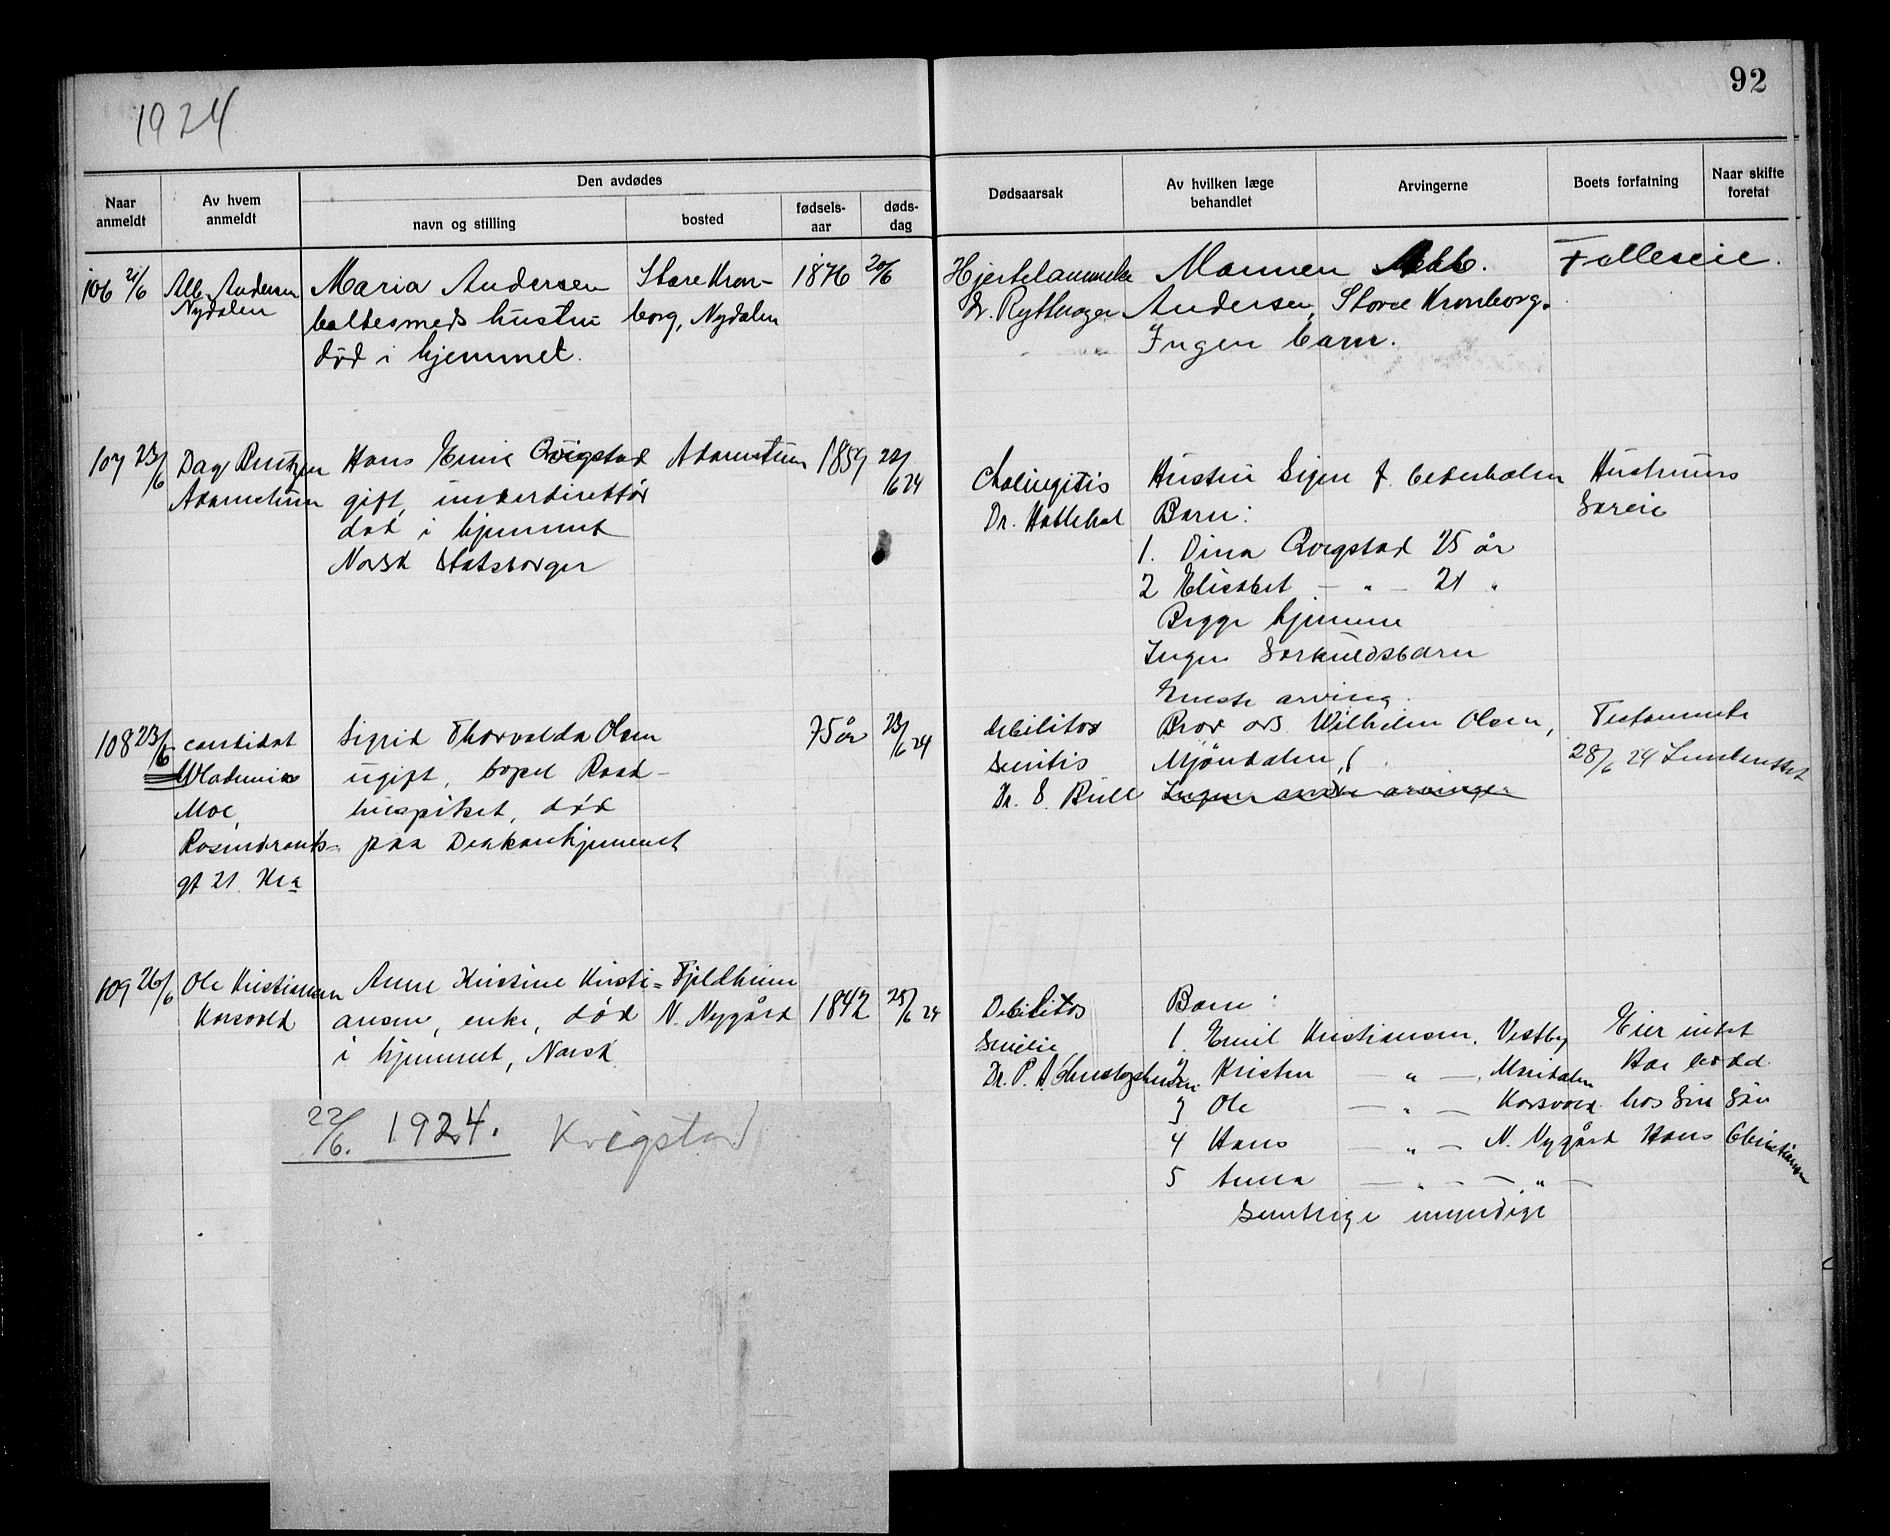 1924
92
Naar anmeldt
Av hvem anmeldt
Den avdødes
navn og stilling
bosted
fødsels-aar
døds-dag
Dødsaarsak
Av hvilken læge behandlet
Arvingerne
Boets forfatning
Naar skifte foretat
106 21/6
Alb. Andersen
Nydalen
Maria Andersen
boltesmeds hustru
død i hjemmet.
Store Kron-
borg, Nydalen
1876
20/6
Hjertelammelse
Dr. Rytterager
Mannen Alb.
Andersen, Store Kronborg.
Ingen barn.
Felleseie.
107 23/6
Dag
Adamstuen
Hans Emil Qvigstad
gift, underdirektør
død i hjemmet
Norsk statsborger
Adamstuen
1859
22/6 24
Dr.
Hustru Signe f. Cederholm
Barn:
1. Dina Qvigstad 25 år
2 Elisabet - " - 21 "
Begge hjemme
Ingen særkuldsbarn
Hustruens
særeie
108 23/6
candidat
Wladimir
Moe,
Rosenkrants-
gt 21. Kra
Sigrid Thorvalda Olsen
ugift, bopel Raad-
huspitset, død
paa Diakonhjemmet
75 år
23/6 24
debilitas
senilis
Dr. E. Bull
Eneste arving.
Bror ors. Wilhelm Olsen,
Mjöndalen,
Ingen andre arvinger
Testamente
28/6 24
109 26/6
Ole Kristiansen
Korsvold
Anne Kristine Kristi-
ansen, enke, død
i hjemmet, Norsk
Fjeldheim
N. Nygård
1842
25/6 24
Debilitas
senilis
Dr. P. A.
Barn:
1. Emil Kristiansen, Vestby
2 Kristen - " - , Maridalen
3 Ole - " - Korsvold
4 Hans - " - N. Nygård
5 Anna - " - - " -
Samtlige myndige
Eier intet
Har bodd
hos sin søn
Hans Christiansen
22/6. 1924. Kvigstad